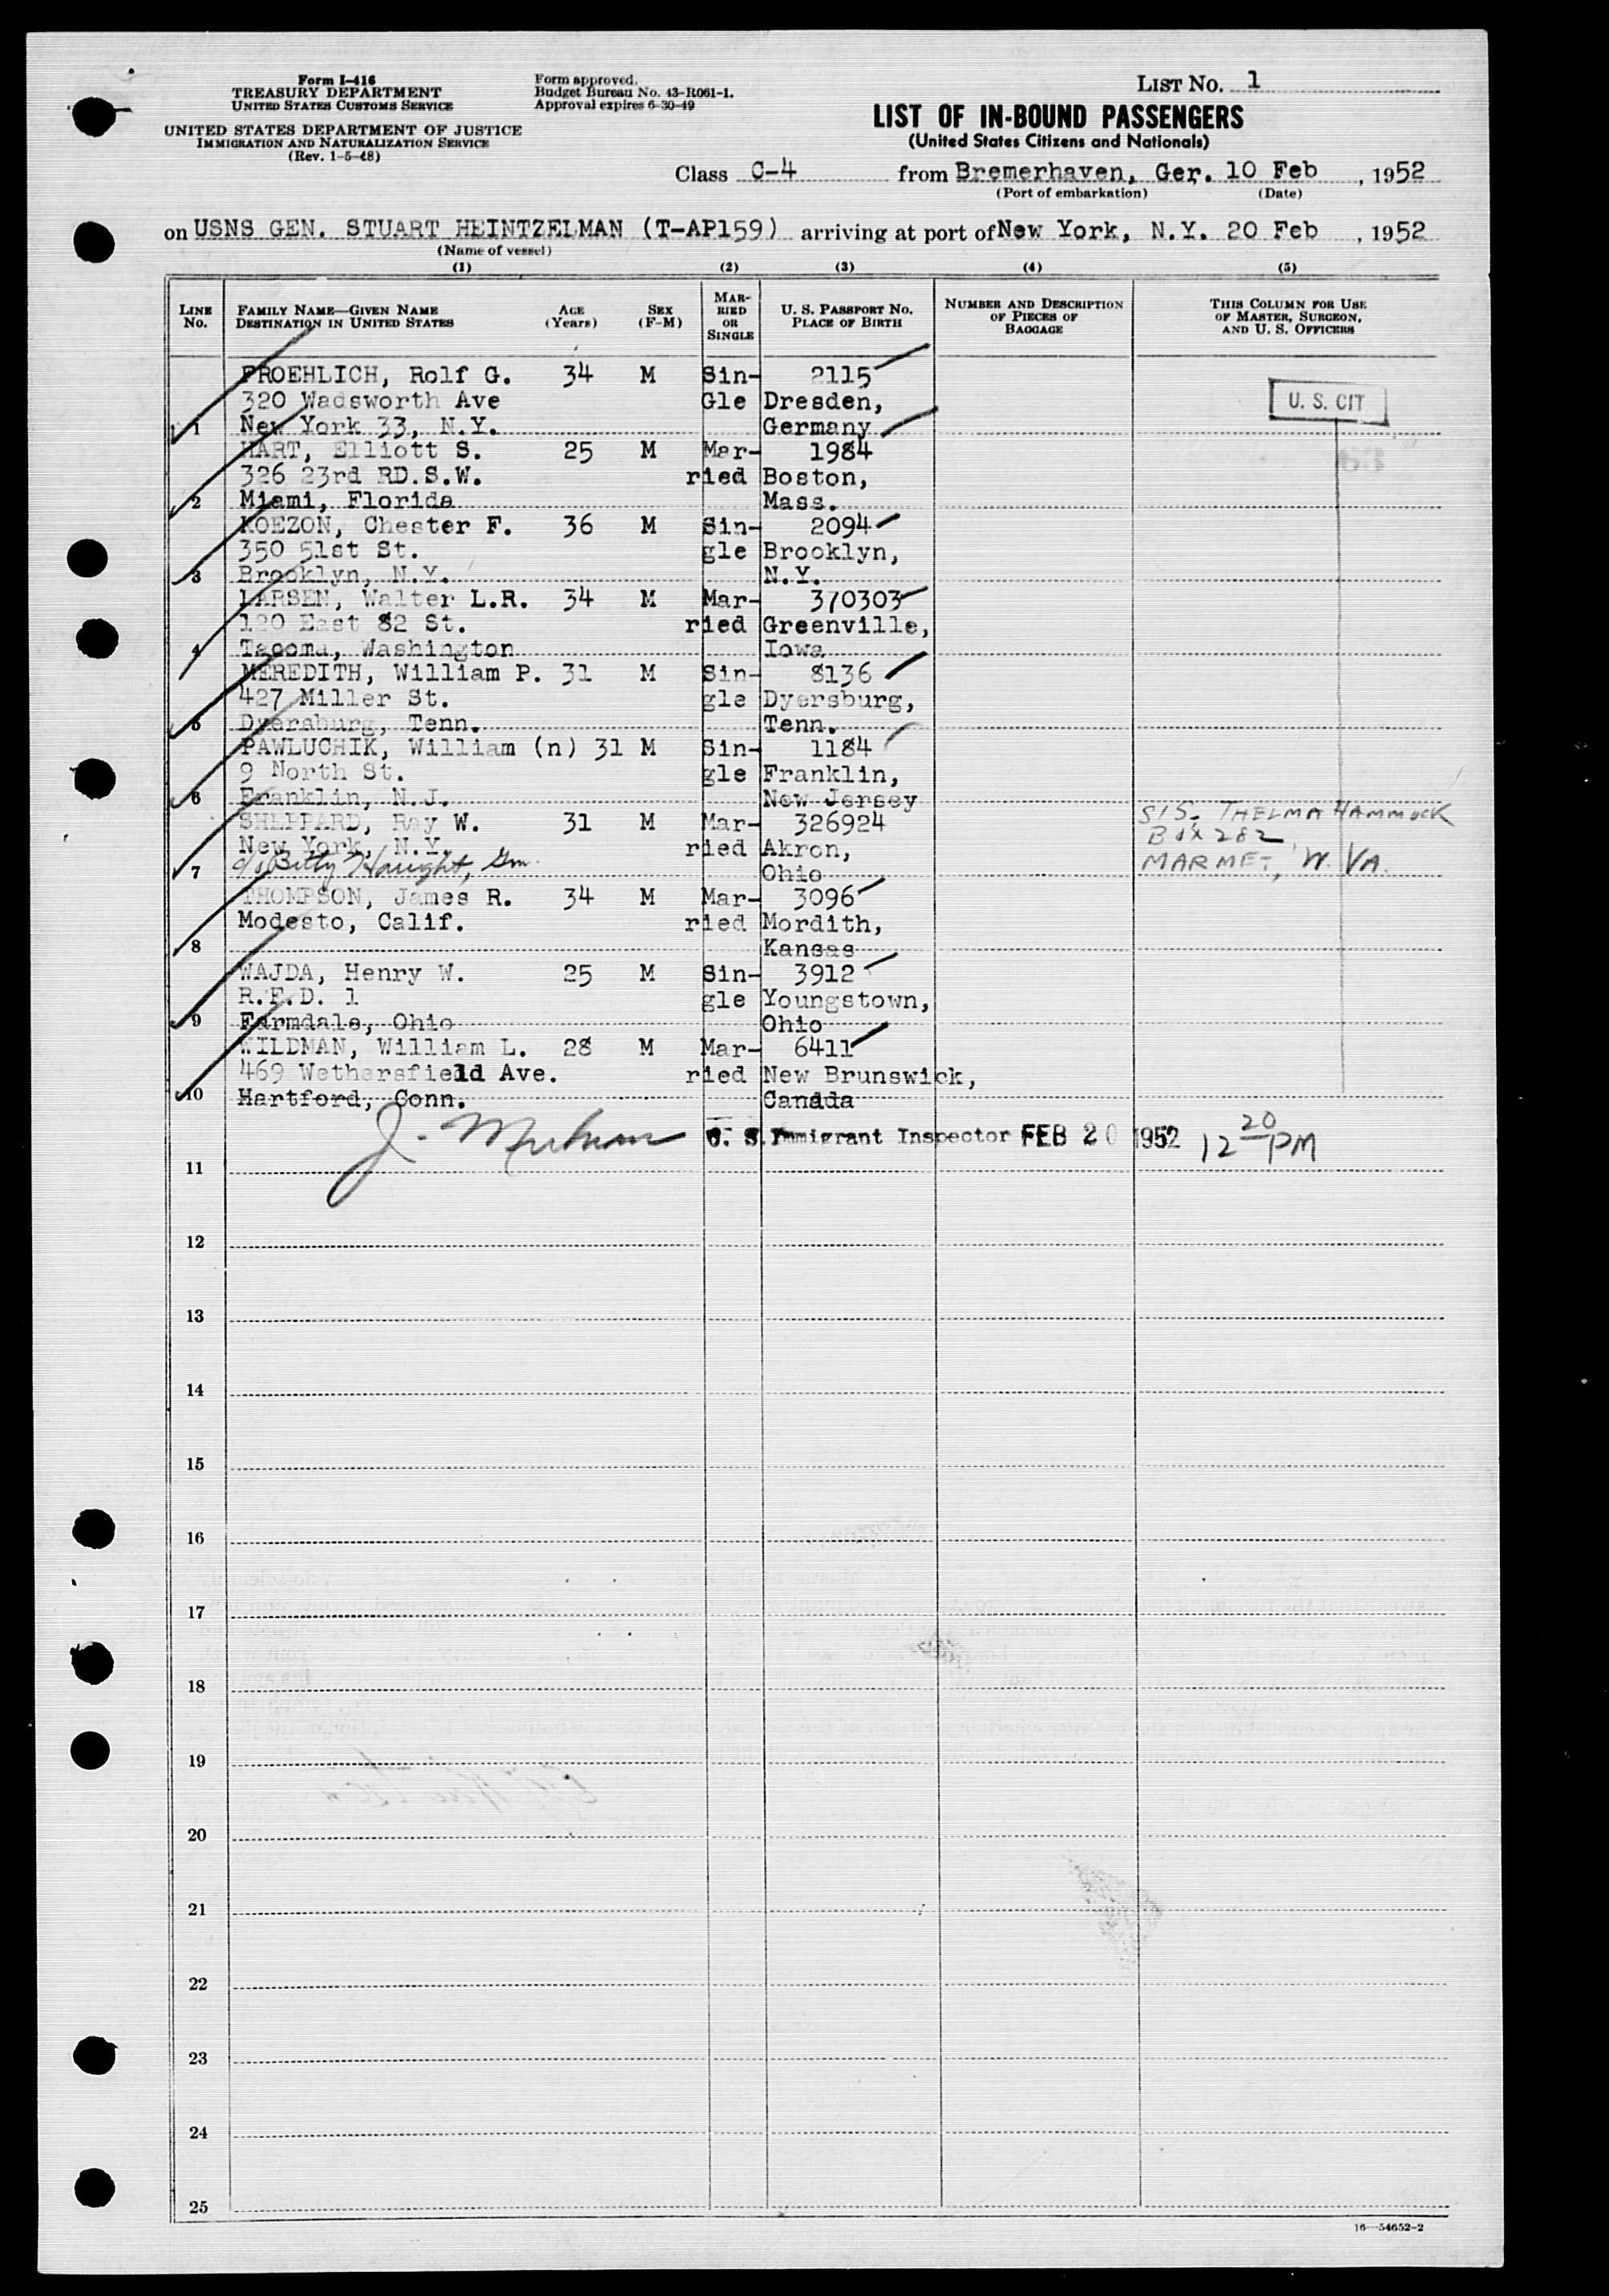 Form I-416
TREASURY DEPARTMENT
UNITED STATES CUSTOMS SERVICE
UNITED STATES DEPARTMENT OF JUSTICE
IMMIGRATION AND NATURALIZATION SERVICE
(Rev. 1-5-48)
Form approved.
Budget Bureau No. 43-R061-1.
Approval expires 6-30-49
LIST NO. 1
LIST OF IN-BOUND PASSENGERS
(United States Citizens and Nationals)
Class C-4 from Bremerhaven, Ger. 10 Feb, 1952
(Port of embarkation) (Date)
on USNS GEN. STUART HEINTZELMAN (T-AP159) arriving at port of New York, N.Y. 20 Feb, 1952
(Name of vessel)
(1) (2) (3) (4) (5)
LINE NO.
FAMILY NAME—GIVEN NAME
DESTINATION IN UNITED STATES
AGE (Years)
SEX (F-M)
MARRIED OR SINGLE
U. S. PASSPORT NO.
PLACE OF BIRTH
NUMBER AND DESCRIPTION OF PIECES OF BAGGAGE
THIS COLUMN FOR USE OF MASTER, SURGEON, AND U. S. OFFICERS
FROEHLICH, Rolf G. 34 M Sin- 2115
320 Wadsworth Ave Gle Dresden, U. S. CIT
1 New York 33, N.Y. Germany
HART, Elliott S. 25 M Mar- 1984
326 23rd RD.S.W. ried Boston,
2 Miami, Florida Mass.
KOEZON, Chester F. 36 M Sin- 2094
350 51st St. gle Brooklyn,
3 Brooklyn, N.Y. N.Y.
LARSEN, Walter L.R. 34 M Mar- 370303
120 East 82 St. ried Greenville,
4 Tacoma, Washington Iowa
MEREDITH, William P. 31 M Sin- 8136
427 Miller St. gle Dyersburg,
5 Dyersburg, Tenn. Tenn.
PAWLUCHIK, William (n) 31 M Sin- 1184
9 North St. gle Franklin,
6 Franklin, N.J. New Jersey
SHEPPARD, Ray W. 31 M Mar- 326924 SIS. THELMA HAMMOCK
New York, N.Y. ried Akron, BOX 282
7 c/o Betty Haught, Ohio MARMET, W. VA.
THOMPSON, James R. 34 M Mar- 3096
Modesto, Calif. ried Mordith,
8 Kansas
WAJDA, Henry W. 25 M Sin- 3912
R.F.D. 1 gle Youngstown,
9 Farmdale, Ohio Ohio
WILDMAN, William L. 28 M Mar- 6411
469 Wethersfield Ave. ried New Brunswick,
10 Hartford, Conn. Canada
J. U. S. Immigrant Inspector FEB 20 1952 12 20 PM
11
12
13
14
15
16
17
18
19
20
21
22
23
24
25
16—54652-2